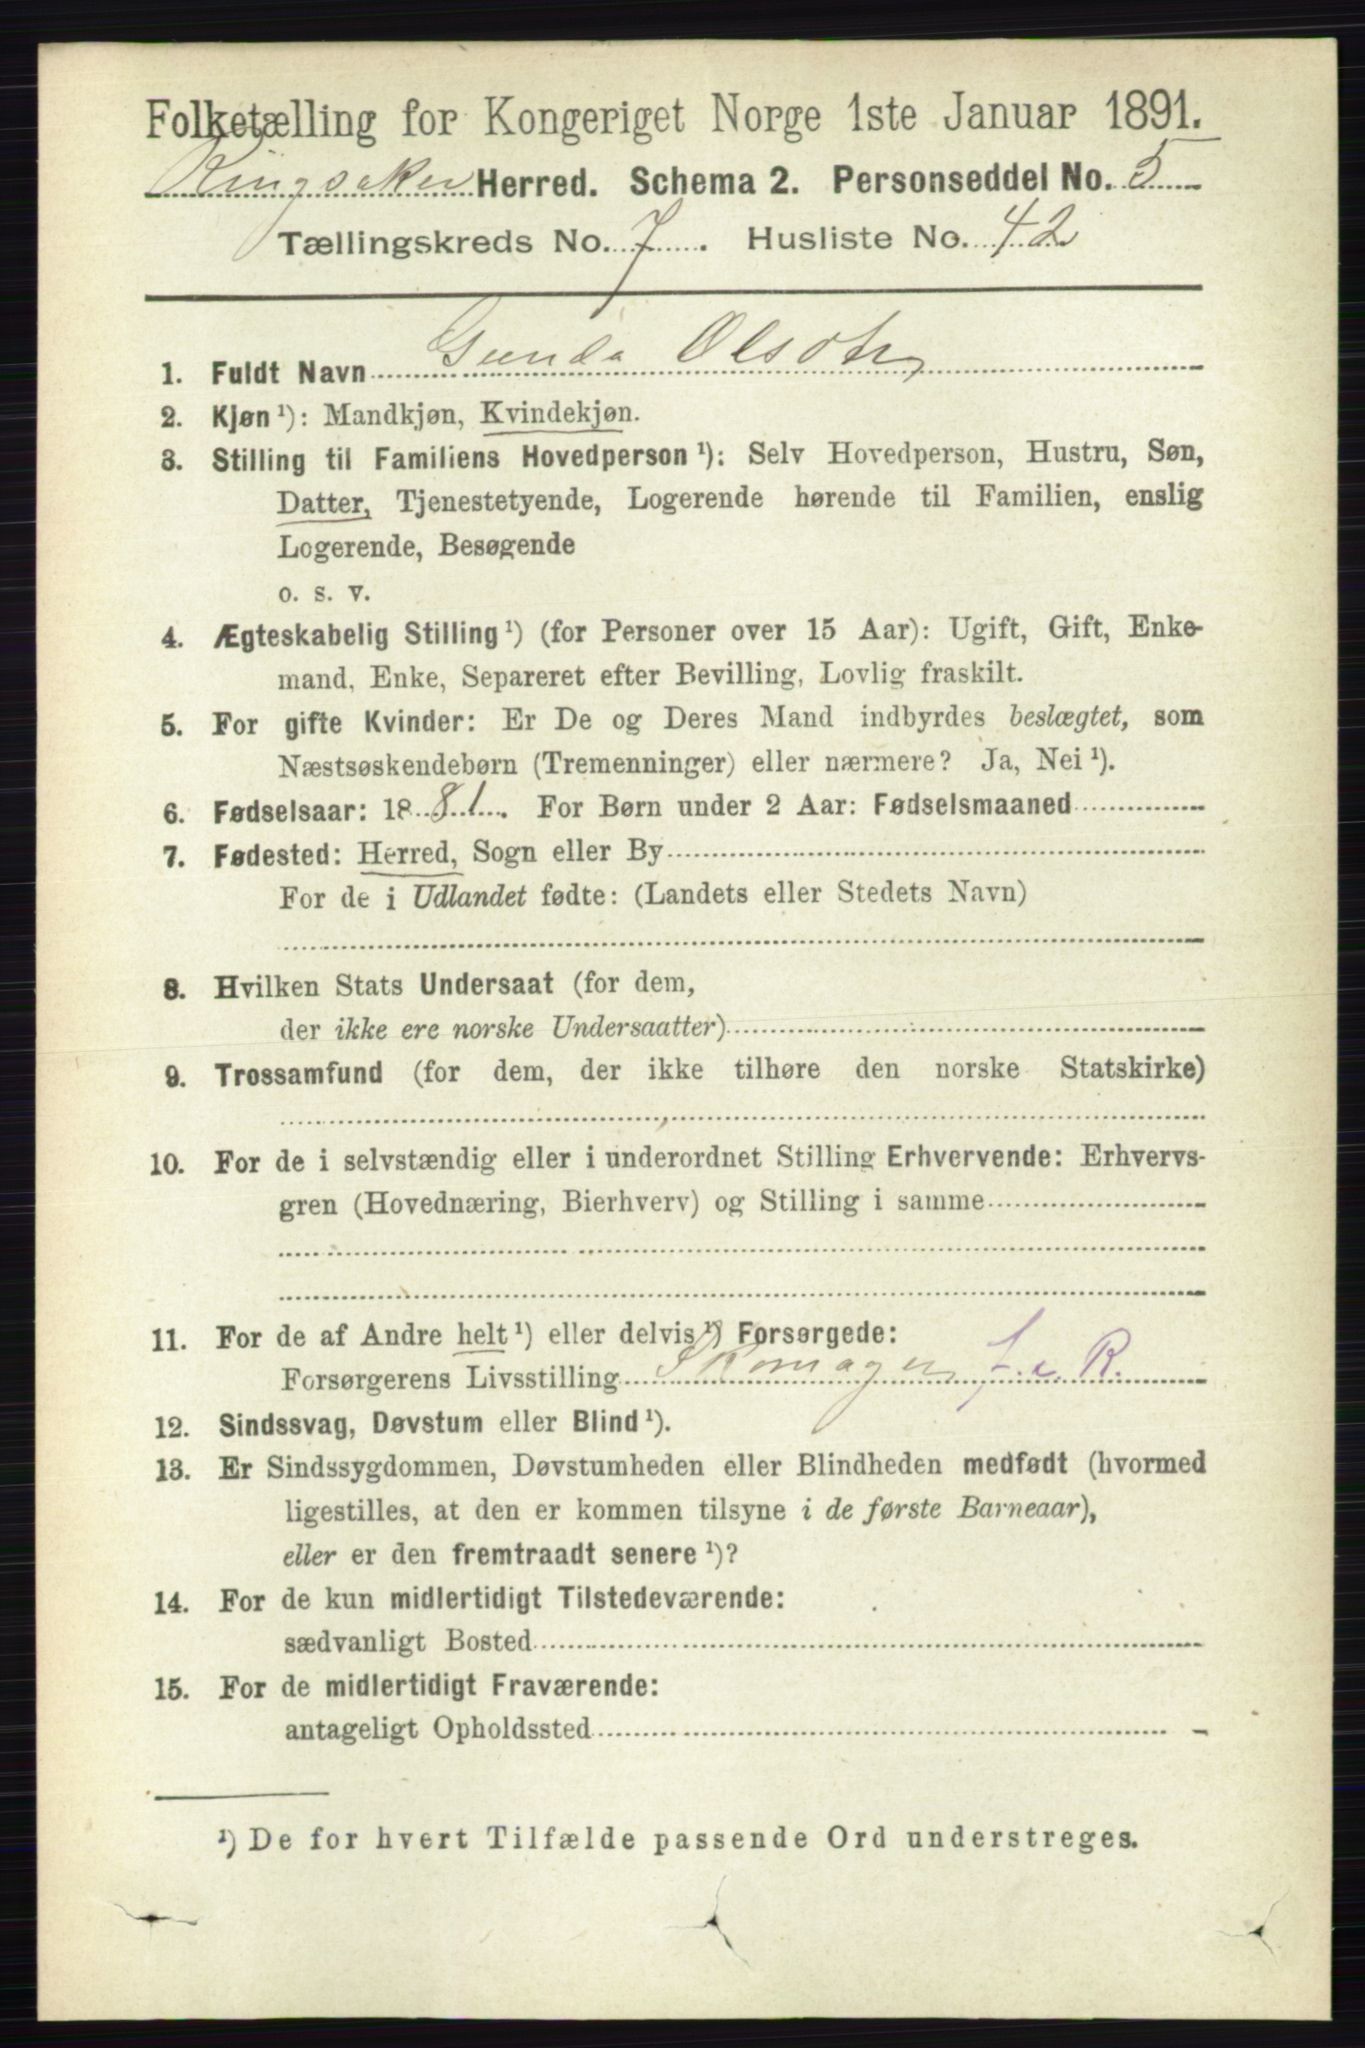 Folketælling for Kongeriget Norge 1ste Januar 1891.
Ringsaker Herred. Schema 2. Personseddel No. 5
Tællingskreds No. 7. Husliste No. 42
1. Fuldt Navn Gunda Olsdtr
2. Kjøn ¹): Mandkjøn, Kvindekjøn.
3. Stilling til Familiens Hovedperson ¹): Selv Hovedperson, Hustru, Søn,
Datter, Tjenestetyende, Logerende hørende til Familien, enslig
Logerende, Besøgende
o. s. v.
4. Ægteskabelig Stilling ¹) (for Personer over 15 Aar): Ugift, Gift, Enke-
mand, Enke, Separeret efter Bevilling, Lovlig fraskilt.
5. For gifte Kvinder: Er De og Deres Mand indbyrdes beslægtet, som
Næstsøskendebørn (Tremenninger) eller nærmere? Ja, Nei ¹).
6. Fødselsaar: 1881. For Børn under 2 Aar: Fødselsmaaned
7. Fødested: Herred, Sogn eller By
For de i Udlandet fødte: (Landets eller Stedets Navn)
8. Hvilken Stats Undersaat (for dem,
der ikke ere norske Undersaatter)
9. Trossamfund (for dem, der ikke tilhøre den norske Statskirke)
10. For de i selvstændig eller i underordnet Stilling Erhvervende: Erhvervs-
gren (Hovednæring, Bierhverv) og Stilling i samme
11. For de af Andre helt ¹) eller delvis ¹) Forsørgede:
Forsørgerens Livsstilling Skomager f. e. R.
12. Sindssvag, Døvstum eller Blind ¹).
13. Er Sindssygdommen, Døvstumheden eller Blindheden medfødt (hvormed
ligestilles, at den er kommen tilsyne i de første Barneaar),
eller er den fremtraadt senere ¹)?
14. For de kun midlertidigt Tilstedeværende:
sædvanligt Bosted
15. For de midlertidigt Fraværende:
antageligt Opholdssted
¹) De for hvert Tilfælde passende Ord understreges.